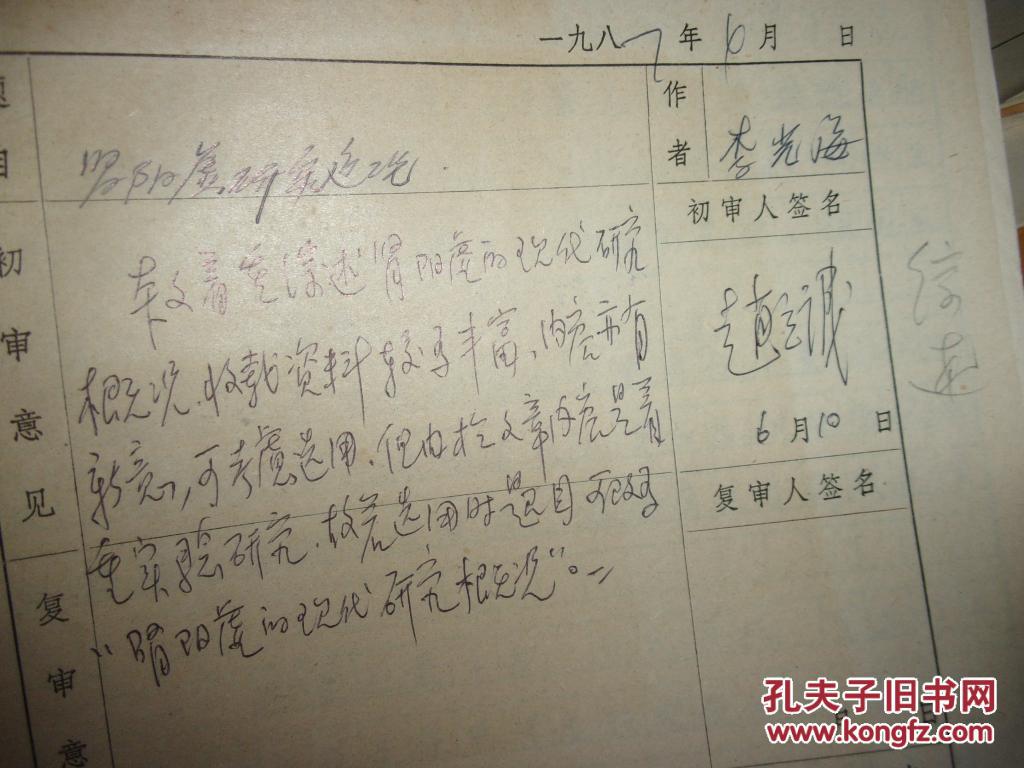 一九八七年6月 日
题目
肾阳虚研究近况
作者
李光海
初审意见
本文着重综述肾阳虚的现代研究
概况,收载资料较为丰富,内容亦有
新意,可考虑选用.但由于文章内容是着
重实验研究.故若选用时题目可改为
“肾阳虚的现代研究概况”。
初审人签名
赵诚
6月10日
综述
复审人签名
复审意
月 日
孔夫子旧书网
www.kongfz.com